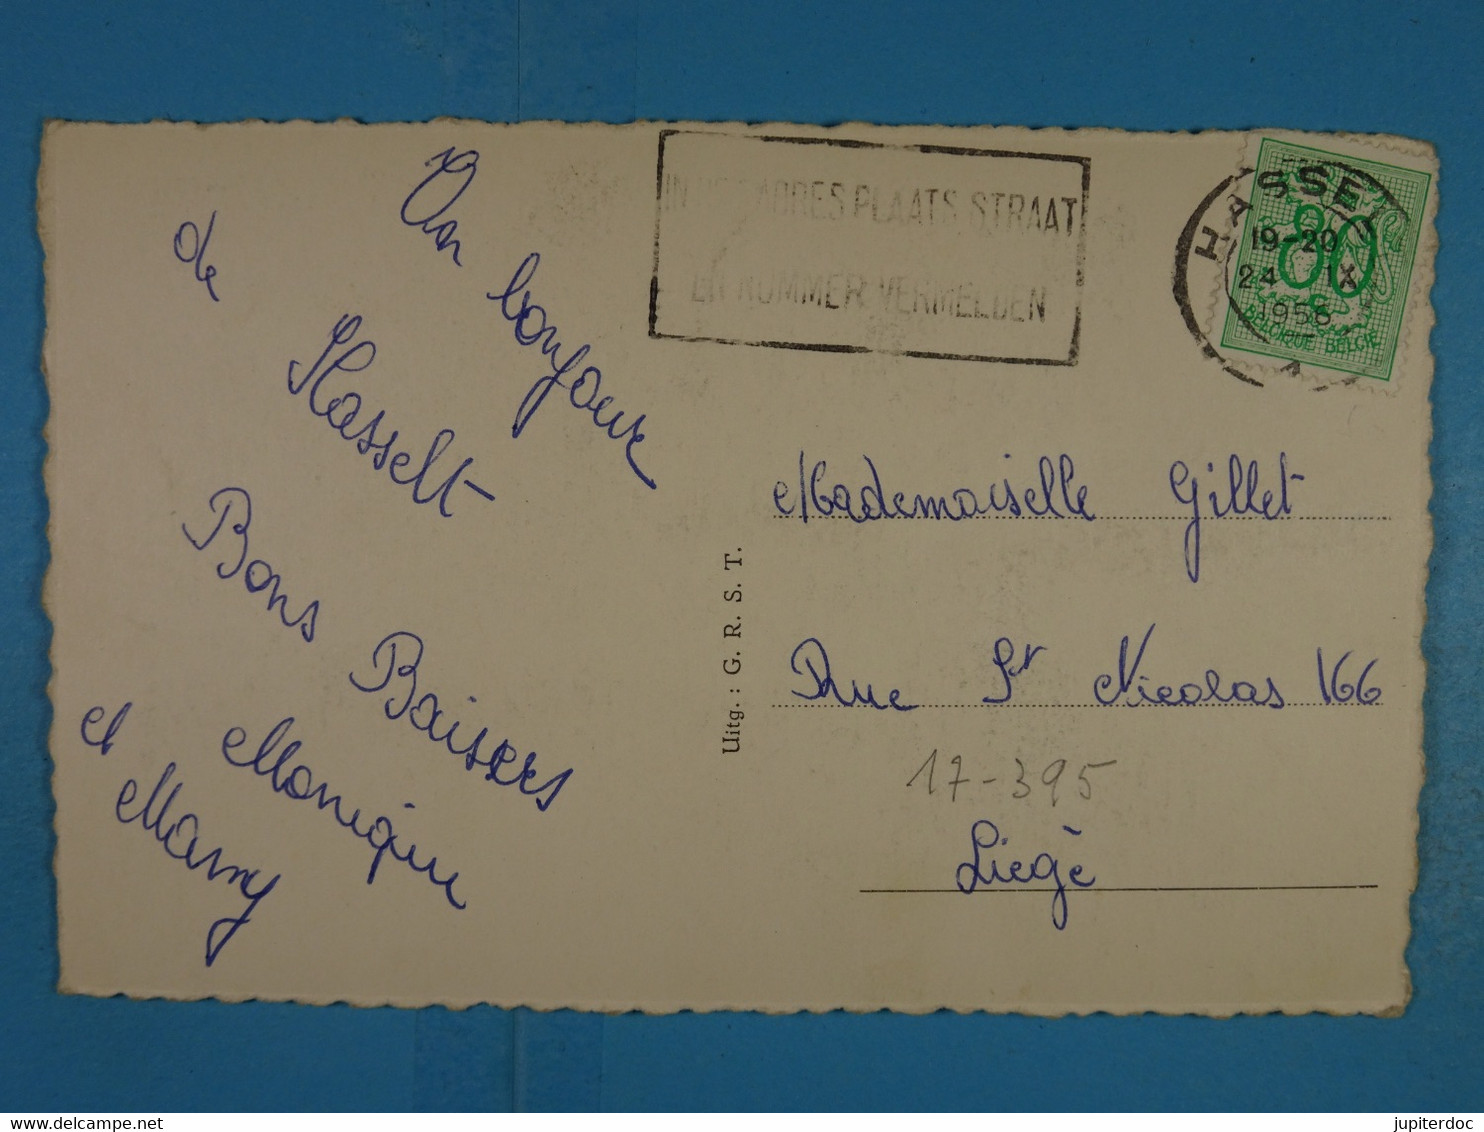 Un bonjour
de Hasselt
Bons Baisers
Monique
et Mamy
IN HET ADRES PLAATS STRAAT
EN NUMMER VERMELDEN
HASSELT
19-20
24 IX
1956
80
BELGIQUE·BELGIE
Uitg. : G. R. S. T.
Mademoiselle Gillet
Rue St Nicolas 166
17-395
Liège
www.delcampe.net
jupiterdoc